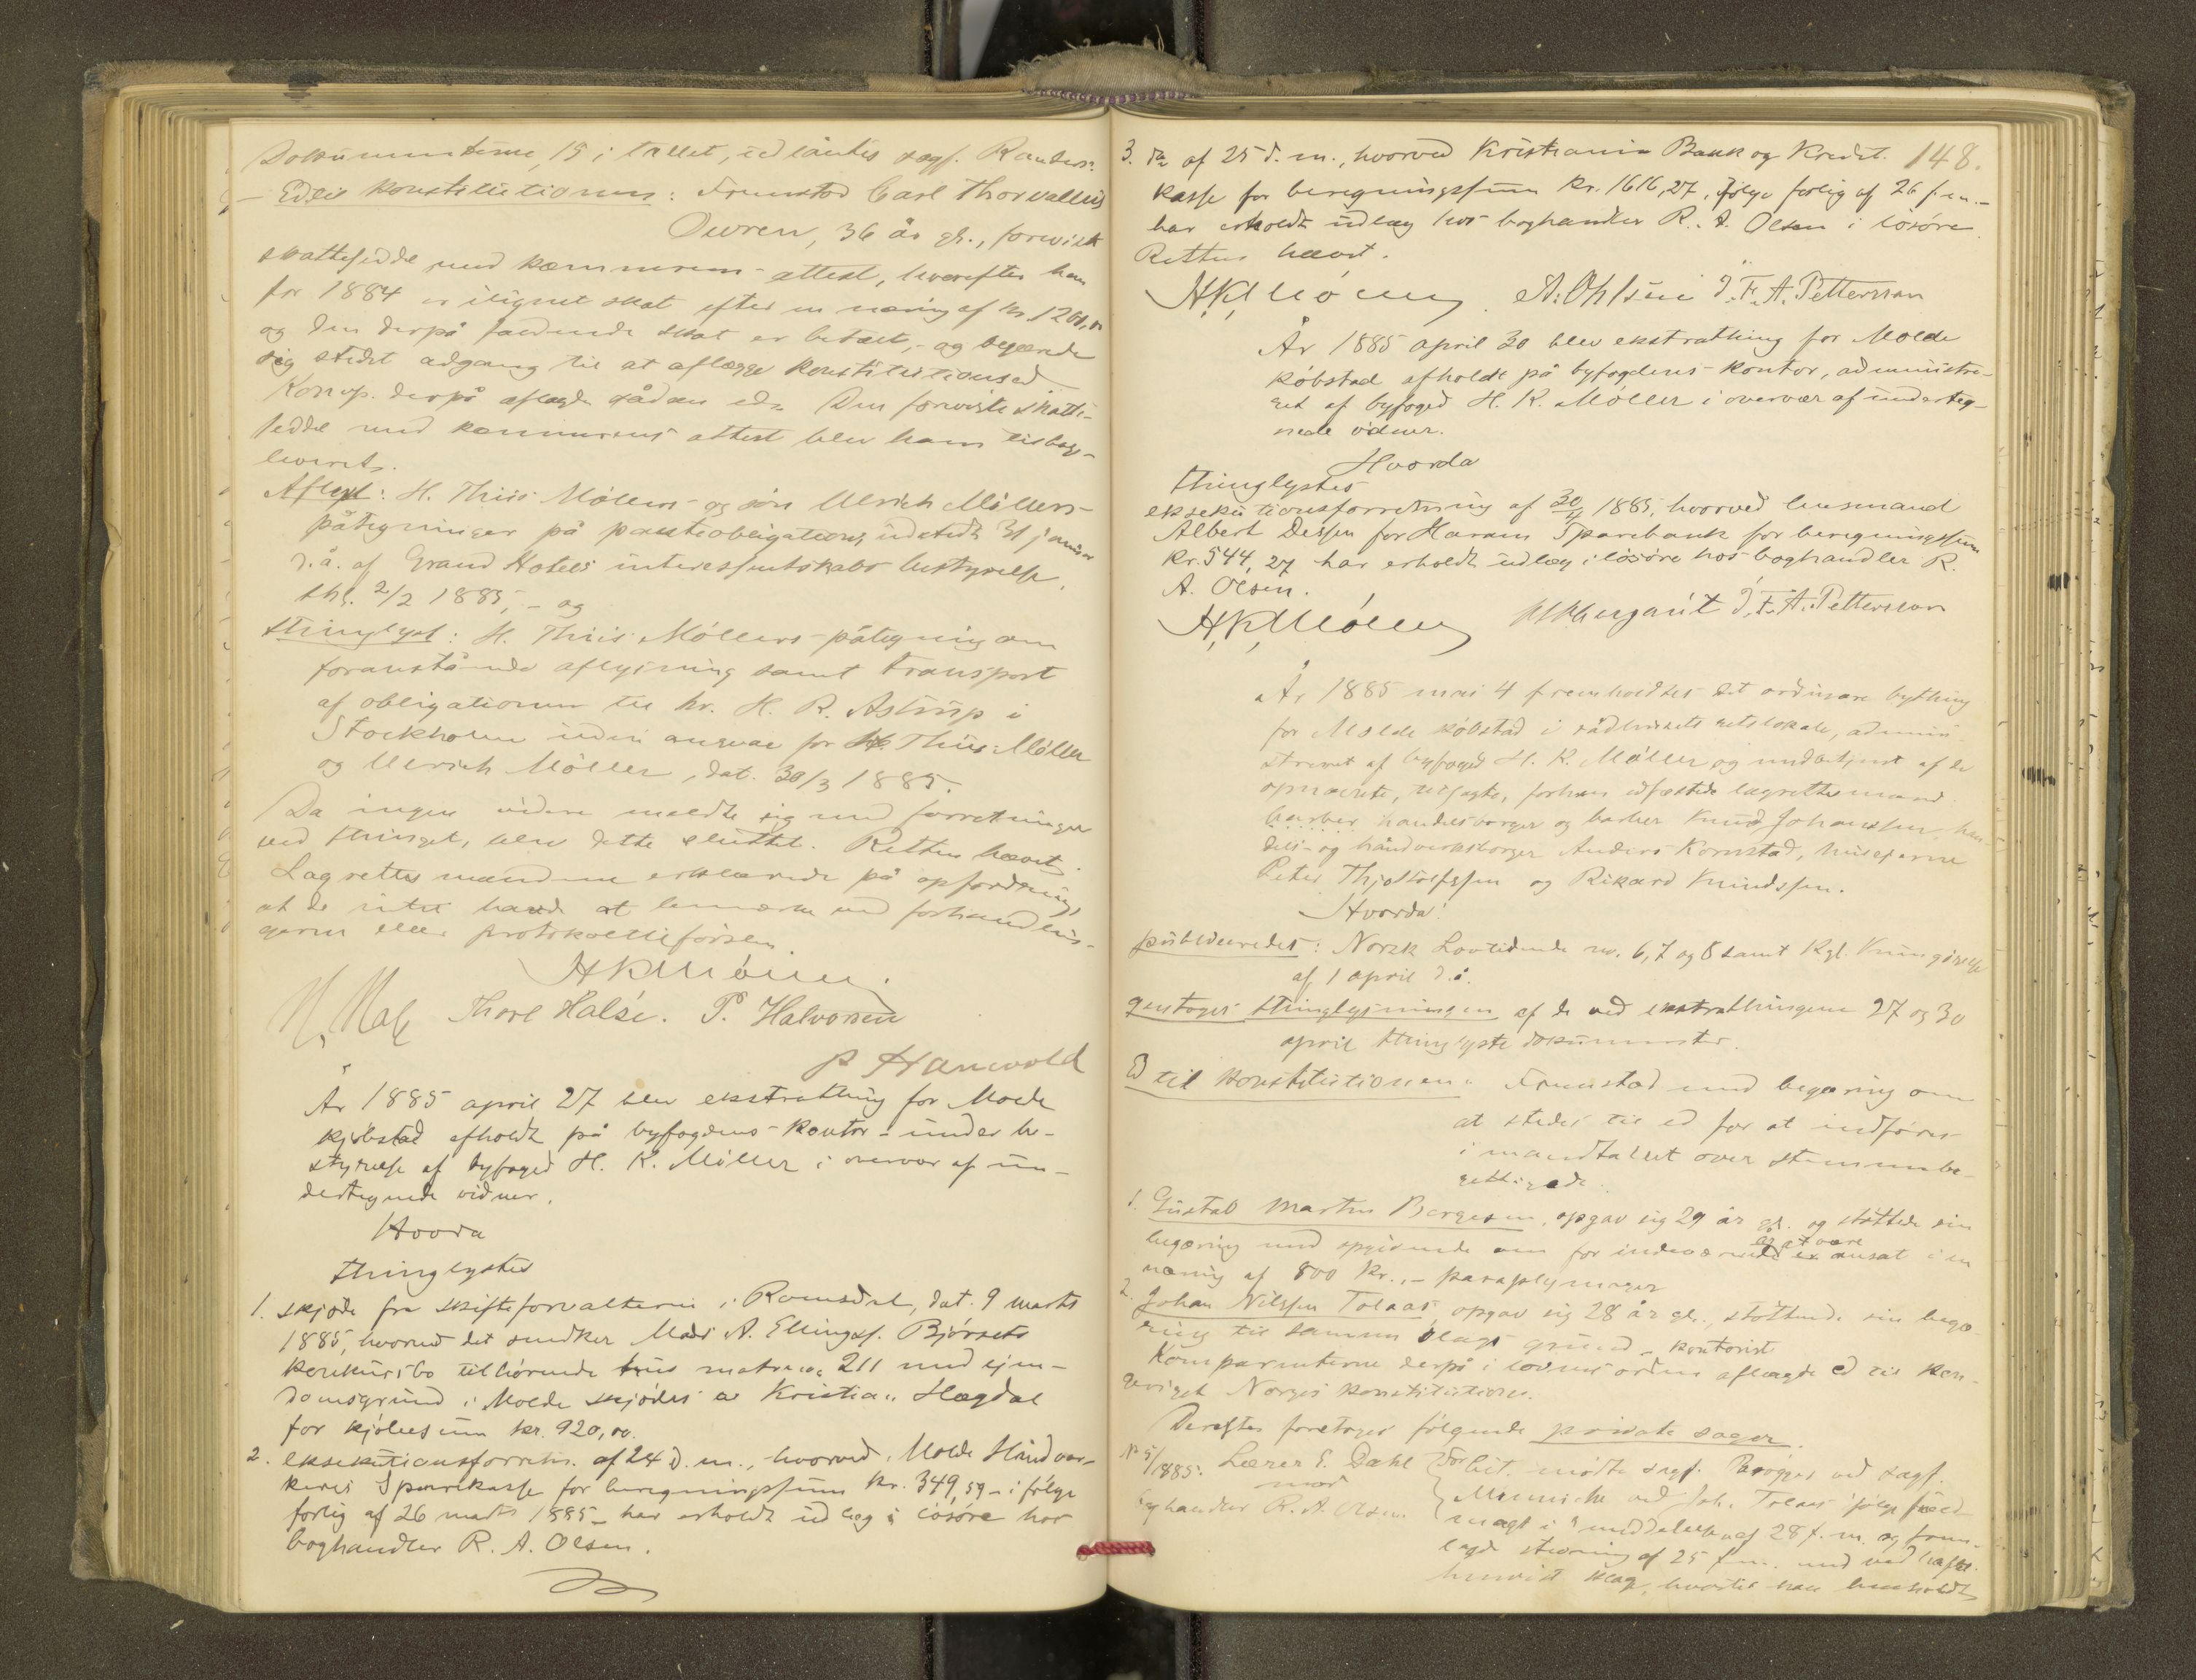 Dokumenterne, 15 i tallet, udlåntes sagf.
Ed til konstitutionen: Fremstod Carl Thorvallus
Owren, 36 år gl., foreviste
skatteseddel med kæmnerens attest, hvorefter han
for 1884 er ilignet skat efter en næring af kr. 1200,00
og den derpå faldende skat er betalt, og begjærede
sig stedet adgang til at aflægge konstitutionsed
Komp. derpå aflagde sådan ed. Den foreviste skatte-
seddel med kæmnerens attest blev ham tilbage-
leveret.
Aflyst: H. Thiis Møllers og søn Ulrich Møllers
påtegninger på panteobligation udstedt 31 januar
d. å. af Grand Hotels interessentskabs bestyrelse,
thl. 2/2 1885, - og
thinglyst: H. Thiis Møllers påtegning om
foranstående aflysning samt transport
af obligationen til hr. H. R. Astrup i
Stockholm uden ansvar for H. Thiis Møller
og Ulrich Møller, dat. 30/3 1885.
Da ingen videre meldte sig med forretninger
ved thinget, blev dette sluttet. Retten hævet.
Lagrettesmændene erklærede på opfordring,
at de intet havde at bemærke ved forhandlin-
gerne eller protokolletførslen.
HKMøller.
Thore Halsé. P. Halvorsen
P Hanevold
År 1885 april 27 blev ekstrathing for Molde
kjøbstad afholdt på byfogdens kontor under be-
styrelse af byfoged H. K. Møller i overvær af un-
dertegnede vidner.
Hvorda
thinglystes
1. skjøde fra skifteforvalteren i Romsdal, dat. 9 marts
1885, hvorved det snedker Mads A. Ellingss. Bjørsets
konkursbo tilhørende hus matr. no. 211 med ejen-
domsgrund i Molde skjødes til Kristian Hægdal
for kjøbesum kr. 920,00.
2. eksekutionsforretn. af 24 d. m., hvorved Molde Håndvær-
keres Sparekasse for beregningssum kr. 349,59 i følge
forlig af 26 marts 1885 har erholdt udlæg i løsøre hos
boghandler R. A. Olsen.
148.
3. do. af 25 d. m., hvorved Kristiania Bank og Kredit-
kasse for beregningssum kr. 1616,27, ifølge forlig af 26 f. m.
har erholdt udlæg hos boghandler R. A. Olsen i løsøre.
Retten hævet.
HKMøller A. Ohlsen J. F. A. Pettersson
År 1885 april 30 blev ekstrathing for Molde
købstad afholdt på byfogdens kontor, administre-
ret af byfoged H. K. Møller i overvær af underteg-
nede vidner.
Hvorda
thinglystes
eksekutionsforretning af 30/4 1885, hvorved lensmand
Albert Dessen for Harams Sparebank for beregningssum
kr. 544,27 har erholdt udlæg i løsøre hos boghandler R.
A. Olsen.
HKMøller J. F. A. Pettersson
År 1885 mai 4 fremholdtes det ordinære bything
for Molde købstad i rådhusets retslokale, admini-
streret af byfoged H. K. Møller og medbetjent af de
opnævnte, udsagte, forhen edfæstede lagrettesmænd
barber handelsborger og barber Knud Johanssen, han-
dels- og håndverksborger Anders Kornstad, huseierne
Peter Thjostolfssen og Rikard Knudssen.
Hvorda:
publiceredes: Norsk Lovtidende no. 6, 7 og 8 samt Kgl. Kungjørelse
af 1 april d. å.
gentoges thinglysningen af de ved ekstrathingene 27 og 30
april thinglyste dokumenter.
Ed til konstitutionen: Fremstod med begæring om
at stedes til ed for at indføres
i mandtallet over stemmebe-
rettigede.
1. Gustav Martin Borgesen, opgav sig 29 år gl. og støttede sin
begæring med opgivende om for indeværende år at være ansat i en
næring af 800 kr., - paraplymager
2. Johan Nilssen Tolaas, opgav sig 28 år gl., støttende sin begæ-
ring til samme slags grund - kontorist
Komparenterne derpå i lovens orden aflagde ed til kon-
geriget Norges konstitution.
Derefter foretoges følgende private sager.
No 5/1885. Lærer E. Dahl
mod
boghandler R. A. Olsen
For cit. mødte sagf. ved sagf.
ved Joh. Tolaas ifølge fuld-
magt i meddelelsen af 28 f. m. og frem-
lagde stevning af 25 f. m. med ved hæftet
henvist klage, hvortil han henholdt